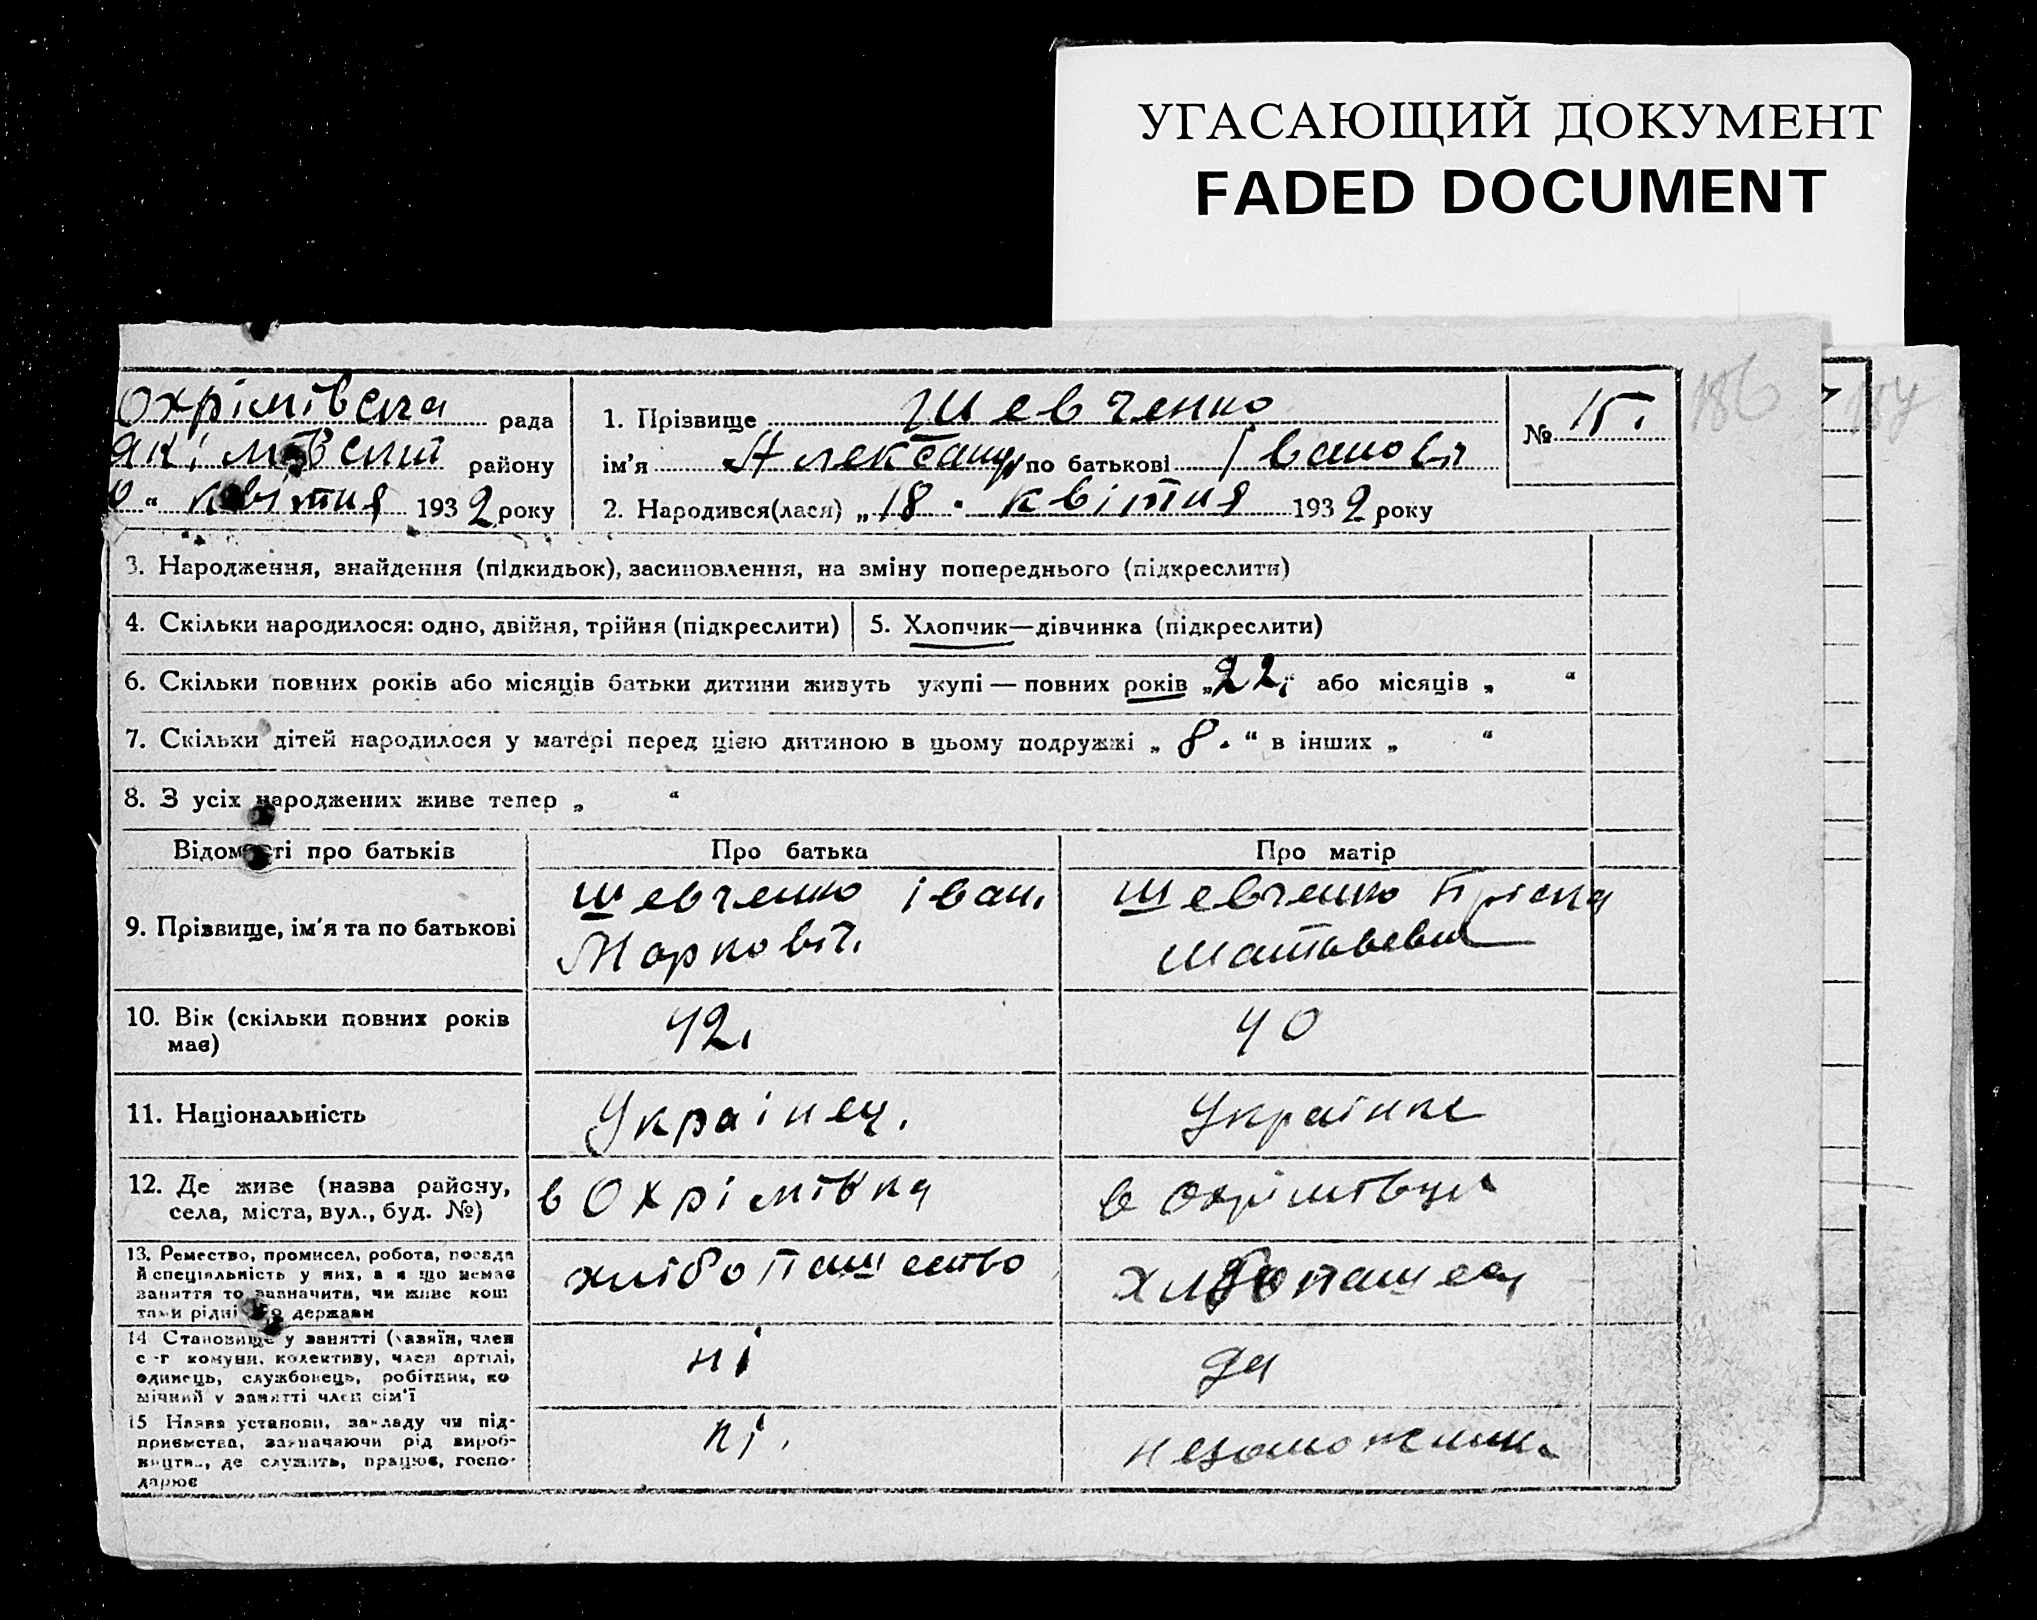 УГАСАЮЩИЙ ДОКУМЕНТ
FADED DOCUMENT
186
Охрімівска рада
Якімівский району
“ квітня 1932 року
1. Прізвище Шевченко
ім’я Александр по батькові Іванович
2. Народився(лася) „18. квітня 1932 року
№ 15.
3. Народження, знайдення (підкидьок), засиновлення, на зміну попереднього (підкреслити)
4. Скільки народилося: одно, двійня, трійня (підкреслити)
5. Хлопчик—дівчинка (підкреслити)
6. Скільки повних років або місяців батьки дитини живуть укупі — повних років „22“ або місяців „ “
7. Скільки дітей народилося у матері перед цією дитиною в цьому подружжі „ 8. “ в інших „ “
8. З усіх народжених живе тепер „ “
Відомості про батьків Про батька Про матір
9. Прізвище, ім’я та по батькові
Шевченко Іван.
Маркович.
Шевченко Пріска
Матвевна
10. Вік (скільки повних років
має)
42.
40
11. Національність
Украінец.
Украінка
12. Де живе (назва району,
села, міста, вул., буд. №)
в Охрімівка
в Охрімівці
13. Ремество, промисел, робота, посада
й спеціяльність у них, а я що немає
заняття то зазначити, чи живе кош
тами рідні чи держави
хлібопашество
хлібопашец
14 Становище у занятті (хазяїн, член
с -г комуни, колективу, член артілі,
одинець, службовець, робітник, по
мічний у занятті член сім’ї
ні
да
15 Назва установи, закладу чи під-
приємства, зазначаючи рід вироб-
ництва, де служить, працює, госпо-
дарює
ні.
незаможник.